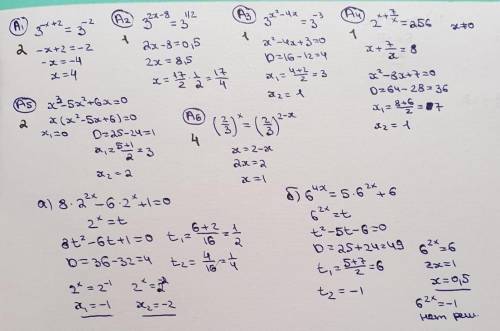 A1 3^(-x+2) = 3^(-2)
2 -x+2=-2
-x=-4
x=4
A2 3^(2x-8) = 3^(1/2)
1 2x-8=0,5
2x=8.5
x=17/2·1/2=17/4
A3 3^(x²-4x) = 3^(-3)
1 x²-4x+3=0
D=16-12=4
x₁=(4+2)/2=3
x₂=1
A4 2^(x+7/x) = 256 x≠0
1 x+7/x=8
x²-8x+7=0
D=64-28=36
x₁=(8+6)/2=7
x₂=1
A5 x³-5x²+6x=0
2 x(x²-5x+6)=0
x₁=0 D=25-24=1
x₁=(5+1)/2=3
x₂=2
A6 (2/3)^x = (2/3)^(2-x)
4 x=2-x
2x=2
x=1
а) 8·2^(2x)-6·2^x+1=0
2^x=t
8t²-6t+1=0 t₁=(6+2)/16=1/2
D=36-32=4 t₂=4/16=1/4
2^x=2^(-1) 2^x=2^(-2)
x₁=-1 x₂=-2
б) 6^(4x)=5·6^(2x)+6
6^(2x)=t
t²-5t-6=0
D=25+24=49
t₁=(5+7)/2=6
t₂=-1
6^(2x)=6
2x=1
x=0,5
6^(2x)=-1
нет реш.